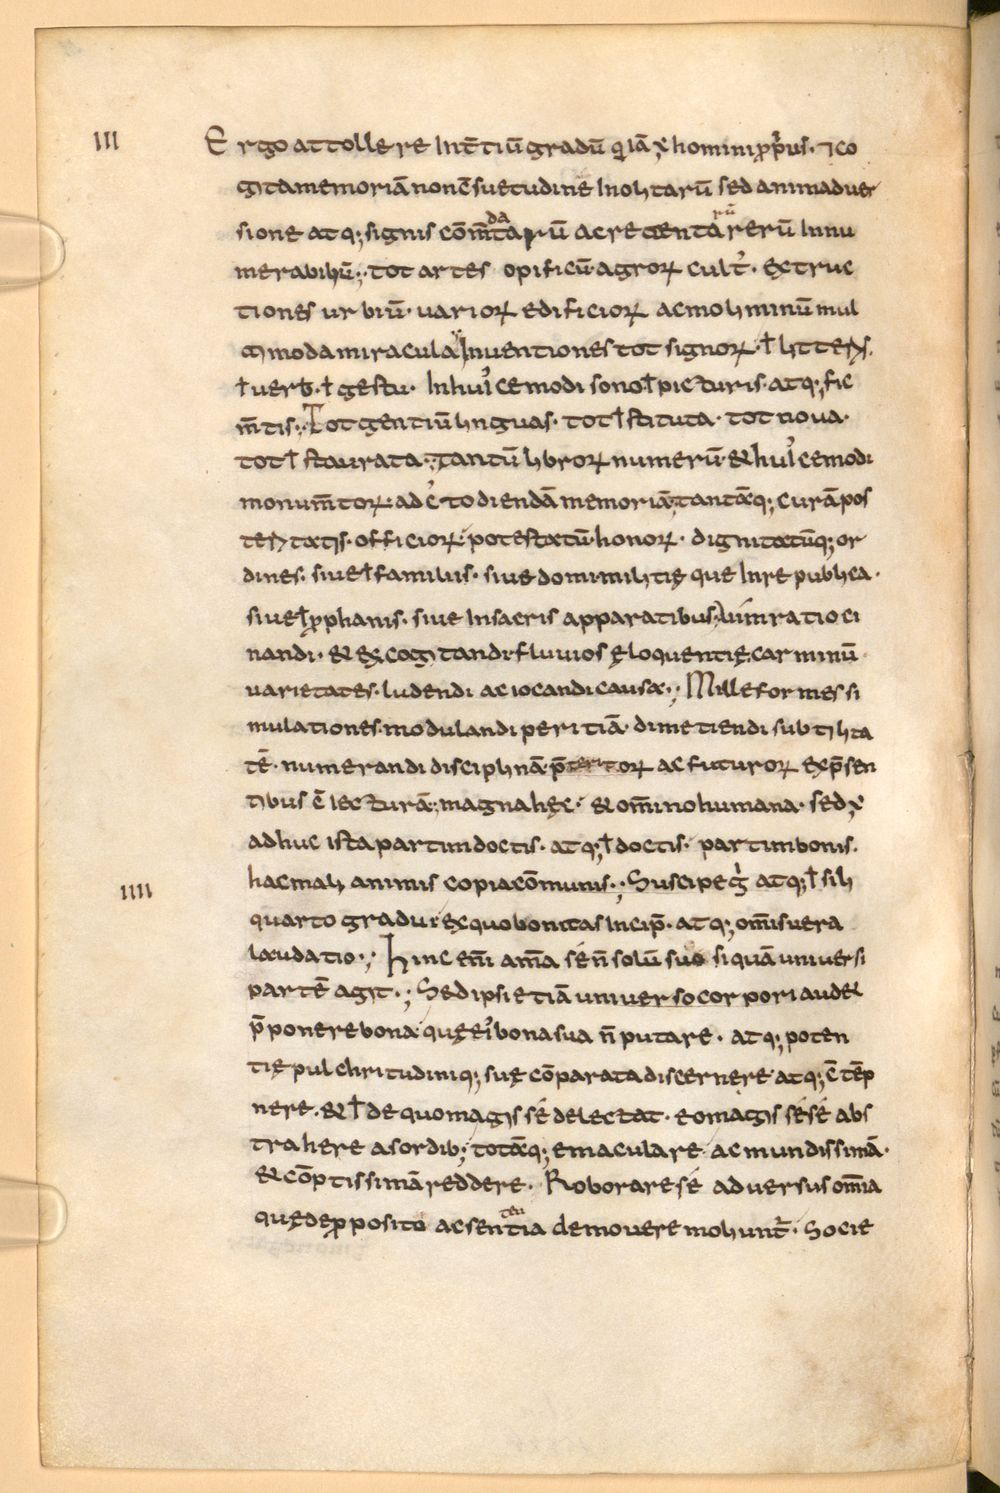 III
Ergo attollere int̄tiū gradū q iā ÷ homini ꝓprius · ⁊ co
gita memoriā non c̄suetudine inolitarū sed animaduer
sione atq; signis cōm̄datarū ac retentarū rerū innu
merabiliū; tot artes opificū agroꝝ cult̕ · extruc
tiones urbiū · uarioꝝ edificioꝝ ac moliminū mul
timoda miracula inuentiones tot signoꝝ · ł litteris ·
ł uerb · ł gestu · in hui̕cemodi sono ł picturis · atq; fic
m̄tis; Tot gentiū linguas · tot īstituta · tot noua ·
tot īstaurata; tantū libroꝝ numerū · & hui̕cemodi
monum̄toꝝ ad c̕todiendā memoriā; tantāq; curā pos
teritatis · officioꝝ; potestatū · honoꝝ · dignitatūq; or
dines · siue ī familiis · siue domi militię que in re publica ·
siue ī ꝓphanis · siue in sacris apparatibus; uim ratioci
nandi · & excogitandi · fluuios ęloquentię · carminū
uarietates · ludendi ac iocandi causa; Milleformes si
mulationes · modulandi peritiā · dimetiendi subtilita
tē · numerandi disciplinā · p̄teritoꝝ ac futuroꝝ ex p̄sen
tibus c̄iecturā; magna hęc · & om̄ino humana · sed ÷
adhuc ista partim doctis · atq; īdoctis · partim bonis ·
hac malis animis copia cōmunis; Suscipe g̕ atq; īsili
IIII
quarto gradui ex quo bonitas incip̄ · atq; om̄is uera
laudatio; Hinc em̄ am̄a sé n̄ solū suo si quā uniuersi
partē agit; Sed ipsi etiā uniuerso corpori audet
p̄ponere bona quę ei̕ bona sua n̄ putare · atq; poten
tię pulchritudiniq; suę cōparata discernere atq; c̄tēp
nere · & īde quo magis sé delectat · eo magis sésé abs
trahere a sordib; totāq; emaculare ac mundissimā ·
& cōptissimā reddere · Roborare sé aduersus om̄ia
quę de ꝓposito ac sententia demouere moliunt̄ · Socie